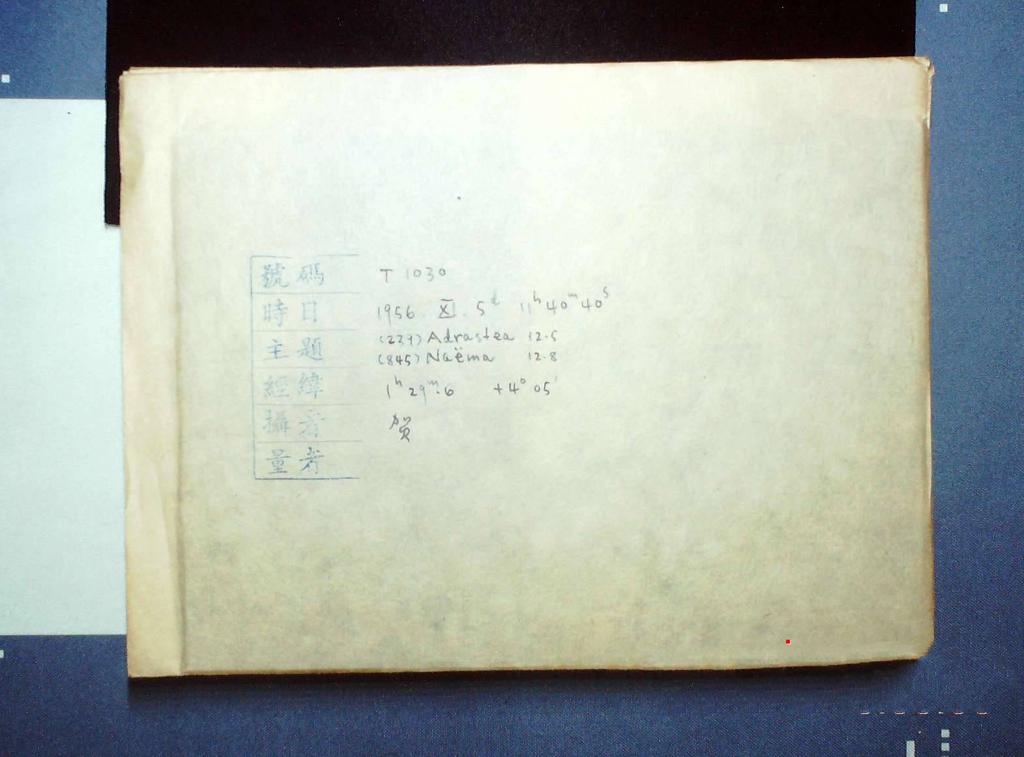 號碼 T 1030
時日 1956. XI. 5ᵈ 11ʰ 40ᵐ 40ˢ
主題 (239) Adrastea 12.5
(845) Naëma 12.8
經緯 1ʰ 29ᵐ.6 +4° 05'
攝者 贺
量者